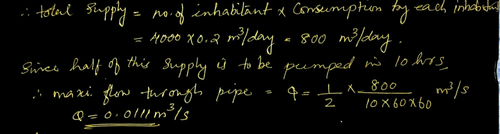 ∴ total supply = no. of inhabitant x consumption by each inhabitant
= 4000 x 0.2 m³/day = 800 m³/day.
Since half of this supply is to be pumped in 10 hrs,
∴ maxi flow through pipe = Q = 1/2 x 800/(10x60x60) m³/s
Q = 0.0111 m³/s